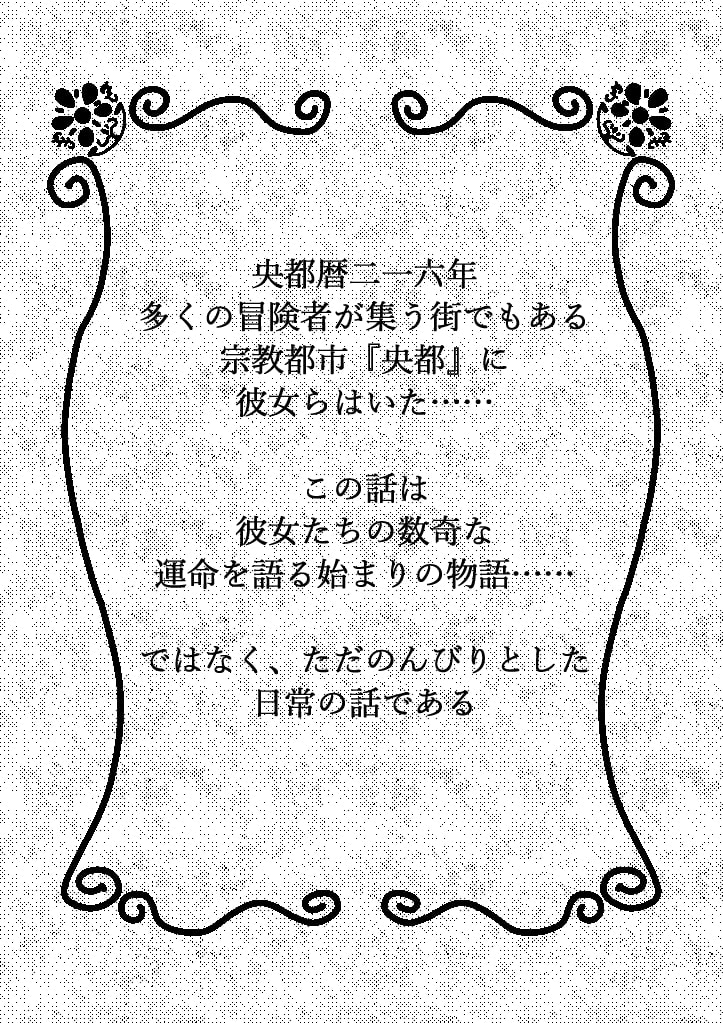 央都暦二一六年
多くの冒険者が集う街でもある
宗教都市『央都』に
彼女らはいた……
この話は
彼女たちの数奇な
運命を語る始まりの物語……
ではなく、ただのんびりとした
日常の話である